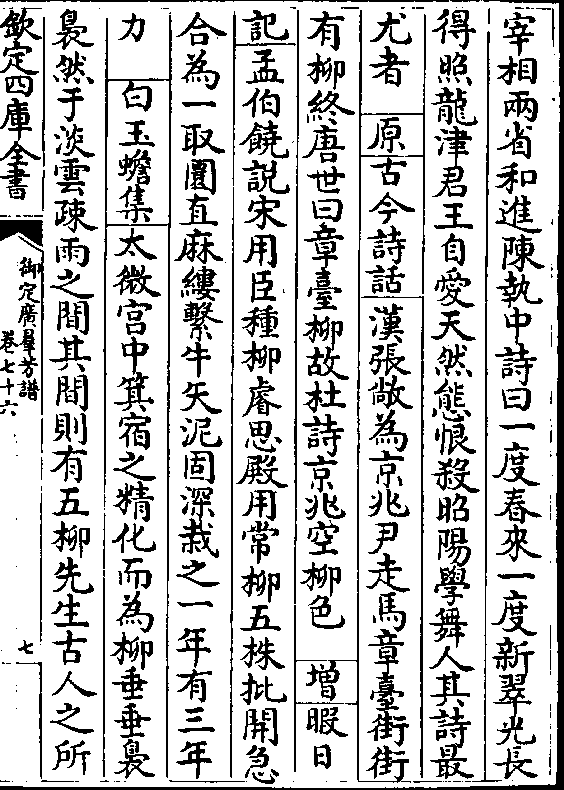 宰相兩省和進陳執中詩曰一度春來一度新翠光長
得照龍津君王自愛天然態恨殺昭陽學舞人其詩最
尤者 原 古今詩話 漢張敞為京兆尹走馬章臺街街
有柳終唐世曰章臺柳故杜詩京兆空柳色 増 暇日
記 孟伯饒説宋用臣種柳睿思殿用常柳五株批開急
合為一取圜直麻縷繫牛矢泥固深栽之一年有三年
力 白玉蟾集 太微宫中箕宿之精化而為柳垂垂裊
裊然于淡雲疎雨之間其間則有五柳先生古人之所
欽定四庫全書
御定廣羣芳譜
卷七十六
七